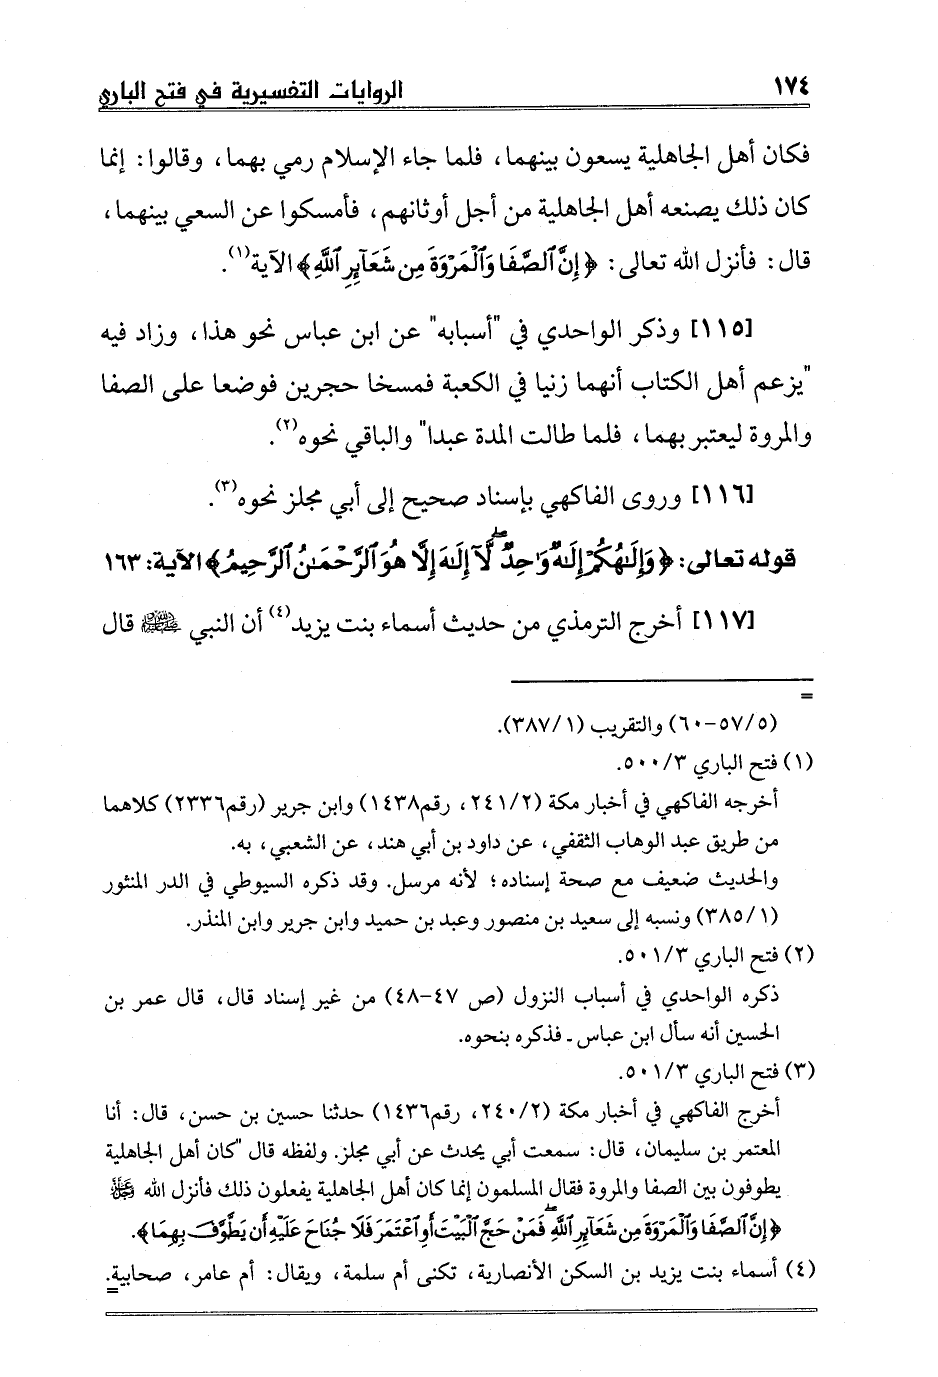 ١٧٤
الروايات التفسيرية في فتح الباري
فكان أهل الجاهلية يسعون بينهما، فلما جاء الإسلام رمي بهما، وقالوا: إنما
كان ذلك يصنعه أهل الجاهلية من أجل أوثانهم، فأمسكوا عن السعي بينهما،
قال: فأنزل الله تعالى: ﴿إِنَّ ٱلصَّفَا وَٱلْمَرْوَةَ مِن شَعَآئِرِ ٱللَّهِ﴾ الآية(١).
[١١٥] وذكر الواحدي في "أسبابه" عن ابن عباس نحو هذا، وزاد فيه
"يزعم أهل الكتاب أنهما زنيا في الكعبة فمسخا حجرين فوضعا على الصفا
والمروة ليعتبر بهما، فلما طالت المدة عبدا" والباقي نحوه(٢).
[١١٦] وروى الفاكهي بإسناد صحيح إلى أبي مجلز نحوه(٣).
قوله تعالى: ﴿وَإِلَـٰهُكُمْ إِلَـٰهٌ وَٰحِدٌ ۖ لَّآ إِلَـٰهَ إِلَّا هُوَ ٱلرَّحْمَـٰنُ ٱلرَّحِيمُ﴾ الآية: ١٦٣
[١١٧] أخرج الترمذي من حديث أسماء بنت يزيد(٤) أن النبي ﷺ قال
=
(٥/٥٧-٦٠) والتقريب (١/٣٨٧).
(١) فتح الباري ٣/٥٠٠.
أخرجه الفاكهي في أخبار مكة (٢/٢٤١، رقم١٤٣٨) وابن جرير (رقم٢٣٣٦) كلاهما
من طريق عبد الوهاب الثقفي، عن داود بن أبي هند، عن الشعبي، به.
والحديث ضعيف مع صحة إسناده؛ لأنه مرسل. وقد ذكره السيوطي في الدر المنثور
(١/٣٨٥) ونسبه إلى سعيد بن منصور وعبد بن حميد وابن جرير وابن المنذر.
(٢) فتح الباري ٣/٥٠١.
ذكره الواحدي في أسباب النزول (ص ٤٧-٤٨) من غير إسناد قال، قال عمر بن
الحسين أنه سأل ابن عباس ـ فذكره بنحوه.
(٣) فتح الباري ٣/٥٠١.
أخرج الفاكهي في أخبار مكة (٢/٢٤٠، رقم١٤٣٦) حدثنا حسين بن حسن، قال: أنا
المعتمر بن سليمان، قال: سمعت أبي يحدث عن أبي مجلز. ولفظه قال "كان أهل الجاهلية
يطوفون بين الصفا والمروة فقال المسلمون إنما كان أهل الجاهلية يفعلون ذلك فأنزل الله ﷻ
﴿إِنَّ ٱلصَّفَا وَٱلْمَرْوَةَ مِن شَعَآئِرِ ٱللَّهِ ۖ فَمَنْ حَجَّ ٱلْبَيْتَ أَوِ ٱعْتَمَرَ فَلَا جُنَاحَ عَلَيْهِ أَن يَطَّوَّفَ بِهِمَا﴾.
(٤) أسماء بنت يزيد بن السكن الأنصارية، تكنى أم سلمة، ويقال: أم عامر، صحابية.
=